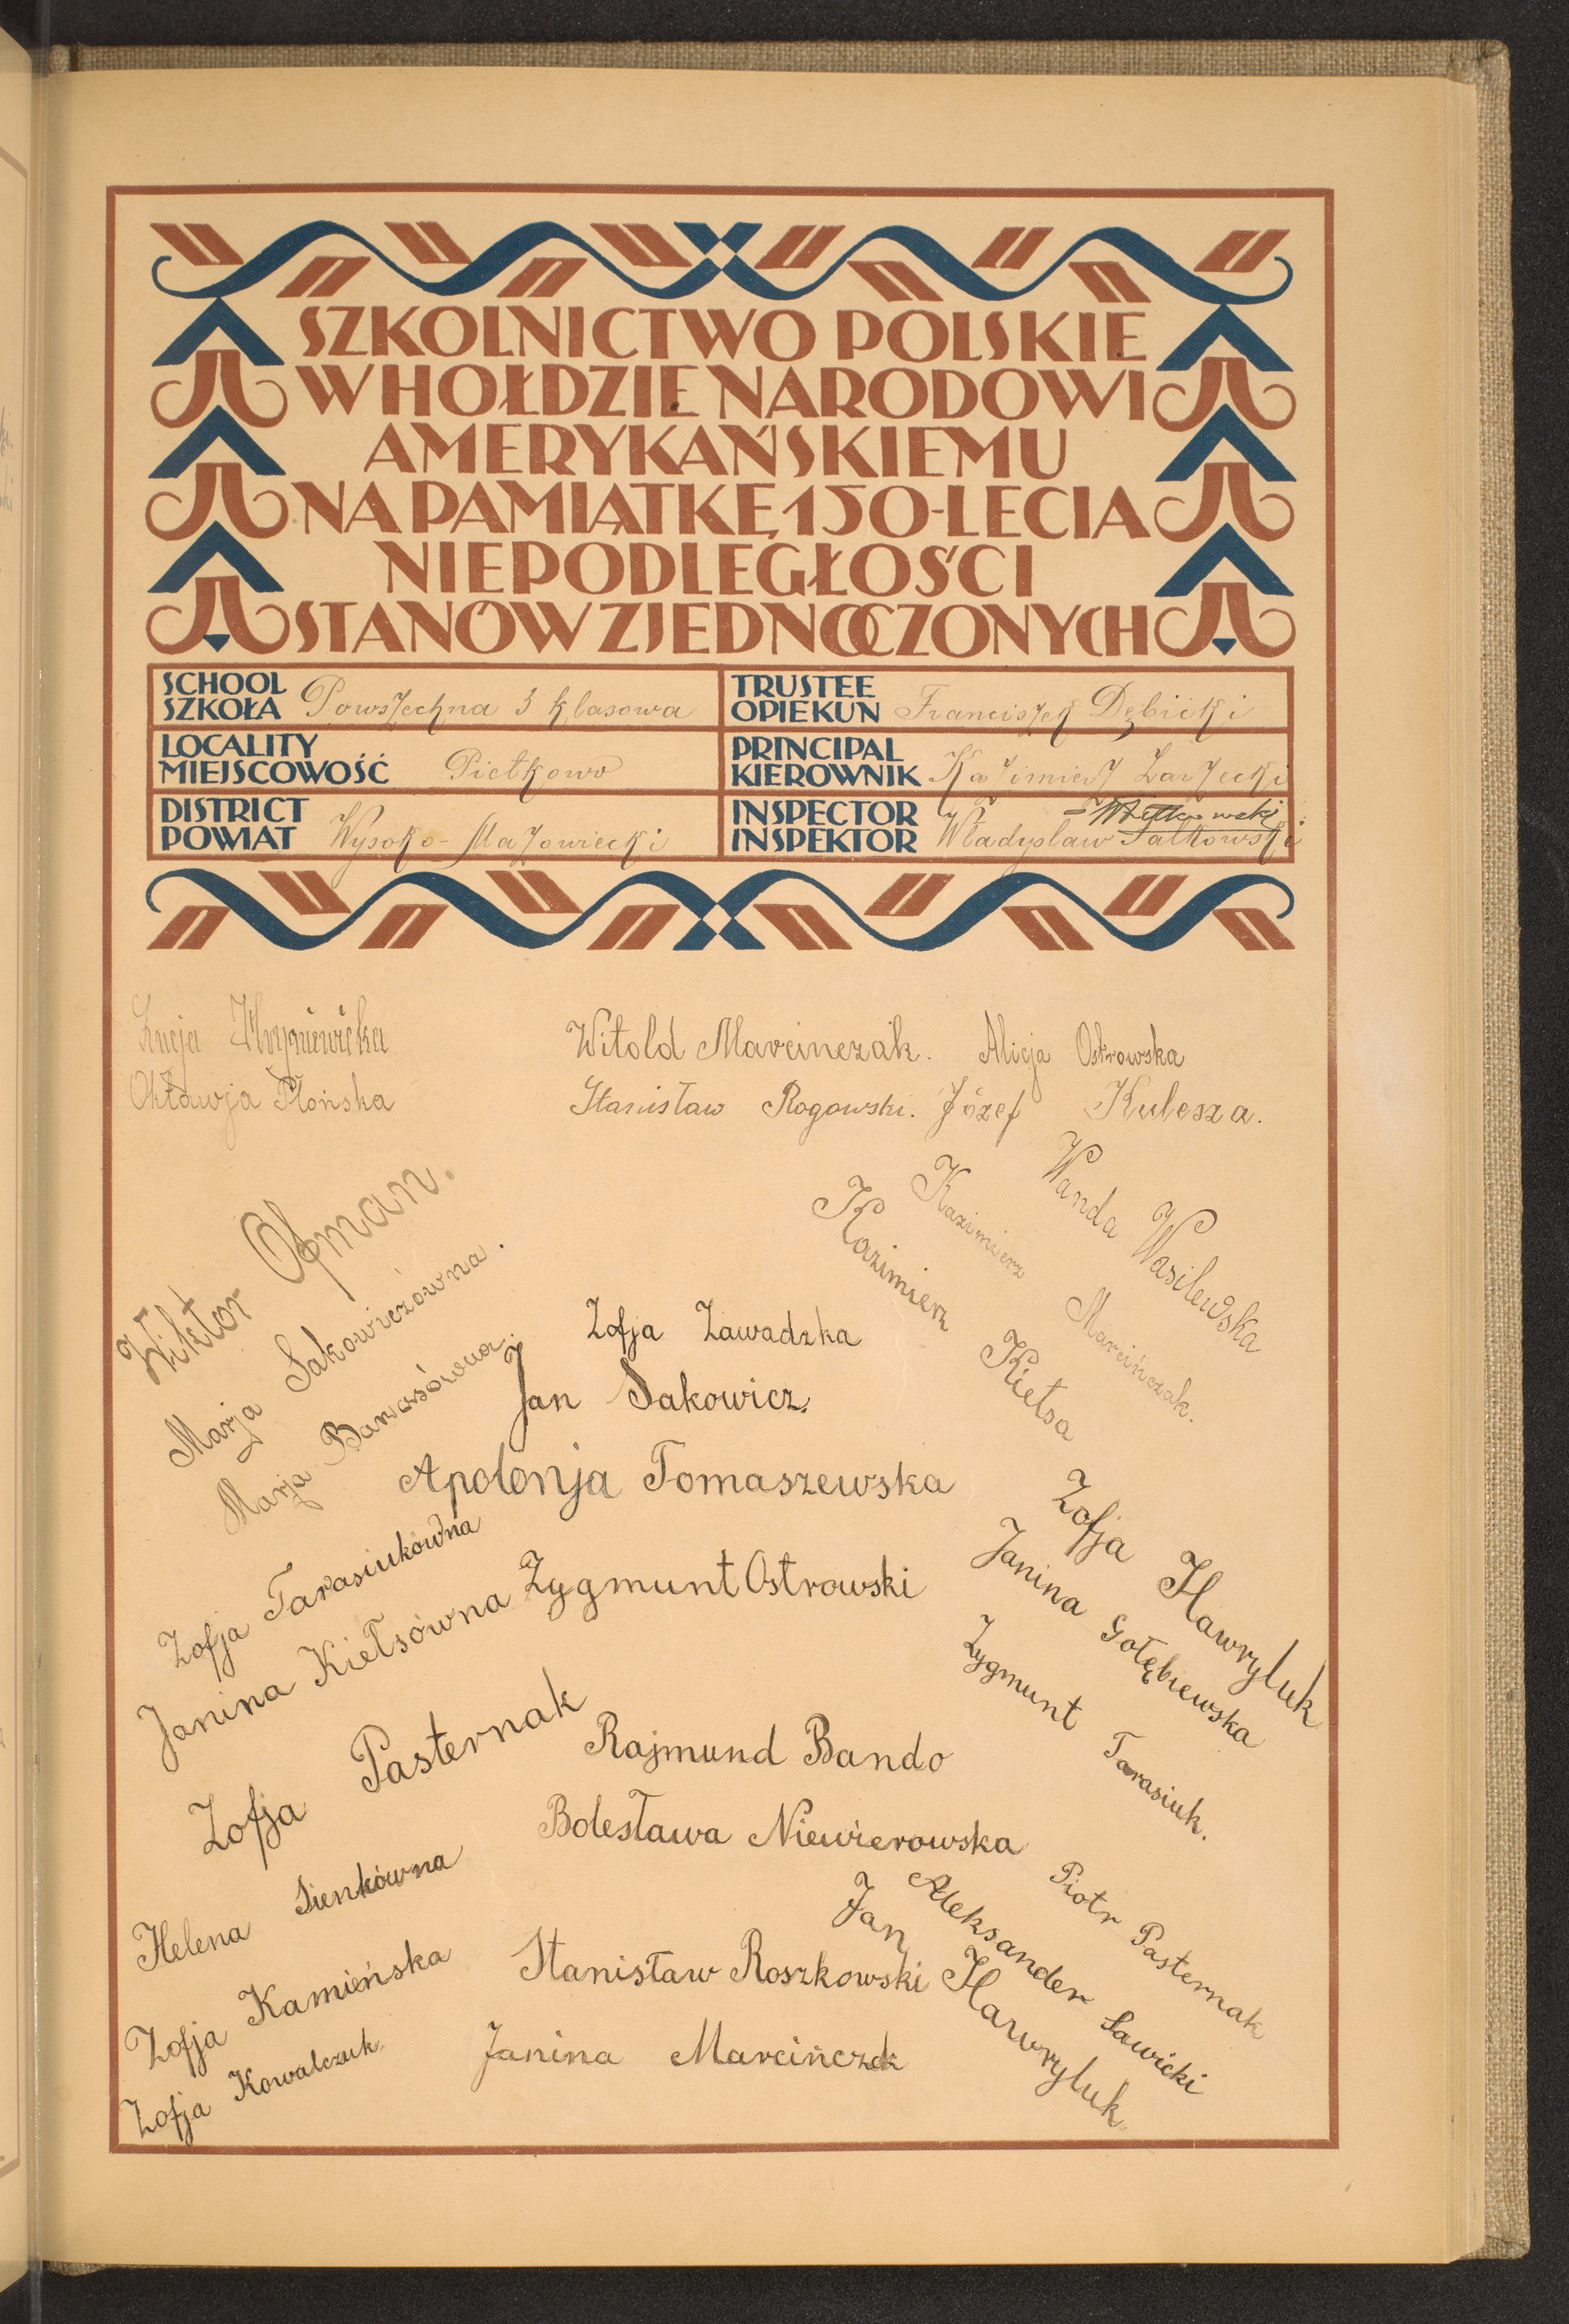 SZKOLNICTWO POLSKIE
W HOŁDZIE NARODOWI
AMERYKAŃSKIEMU
NA PAMIĄTKĘ 150-LECIA
NIEPODLEGŁOŚCI
STANÓW ZJEDNOCZONYCH
SCHOOL
SZKOŁA Powszechna 3 klasowa
TRUSTEE
OPIEKUN Franciszek Dębicki
LOCALITY
MIEJSCOWOŚĆ Pietkowo
PRINCIPAL
KIEROWNIK Kazimierz Zarzecki
DISTRICT
POWIAT Wysoko-Mazowiecki
INSPECTOR
INSPEKTOR Władysław
Łucja Hryniewicka
Oktawja Płońska
Witold Marcinczak. Alicja Ostrowska
Stanisław Rogowski. Józef Kulesza.
Wiktor Ofman.
Marja Sakowiczówna.
Marja Banasówna.
Wanda Wasilewska
Kazimierz Marcińczak.
Kazimierz Kiełsa
Zofja Zawadzka
Jan Sakowicz.
Apolonja Tomaszewska
Zofja Tarasiukówna
Janina Kiełsówna
Zygmunt Ostrowski
Zofja Hawryluk
Janina Gołębiewska
Zygmunt Tarasiuk.
Zofja Pasternak
Rajmund Bando
Bolesława Niewierowska
Helena Sienkówna
Zofja Kamieńska
Zofja Kowalczuk.
Stanisław Roszkowski
Janina Marcińczak
Piotr Pasternak
Aleksander Sawicki
Jan Hawryluk.